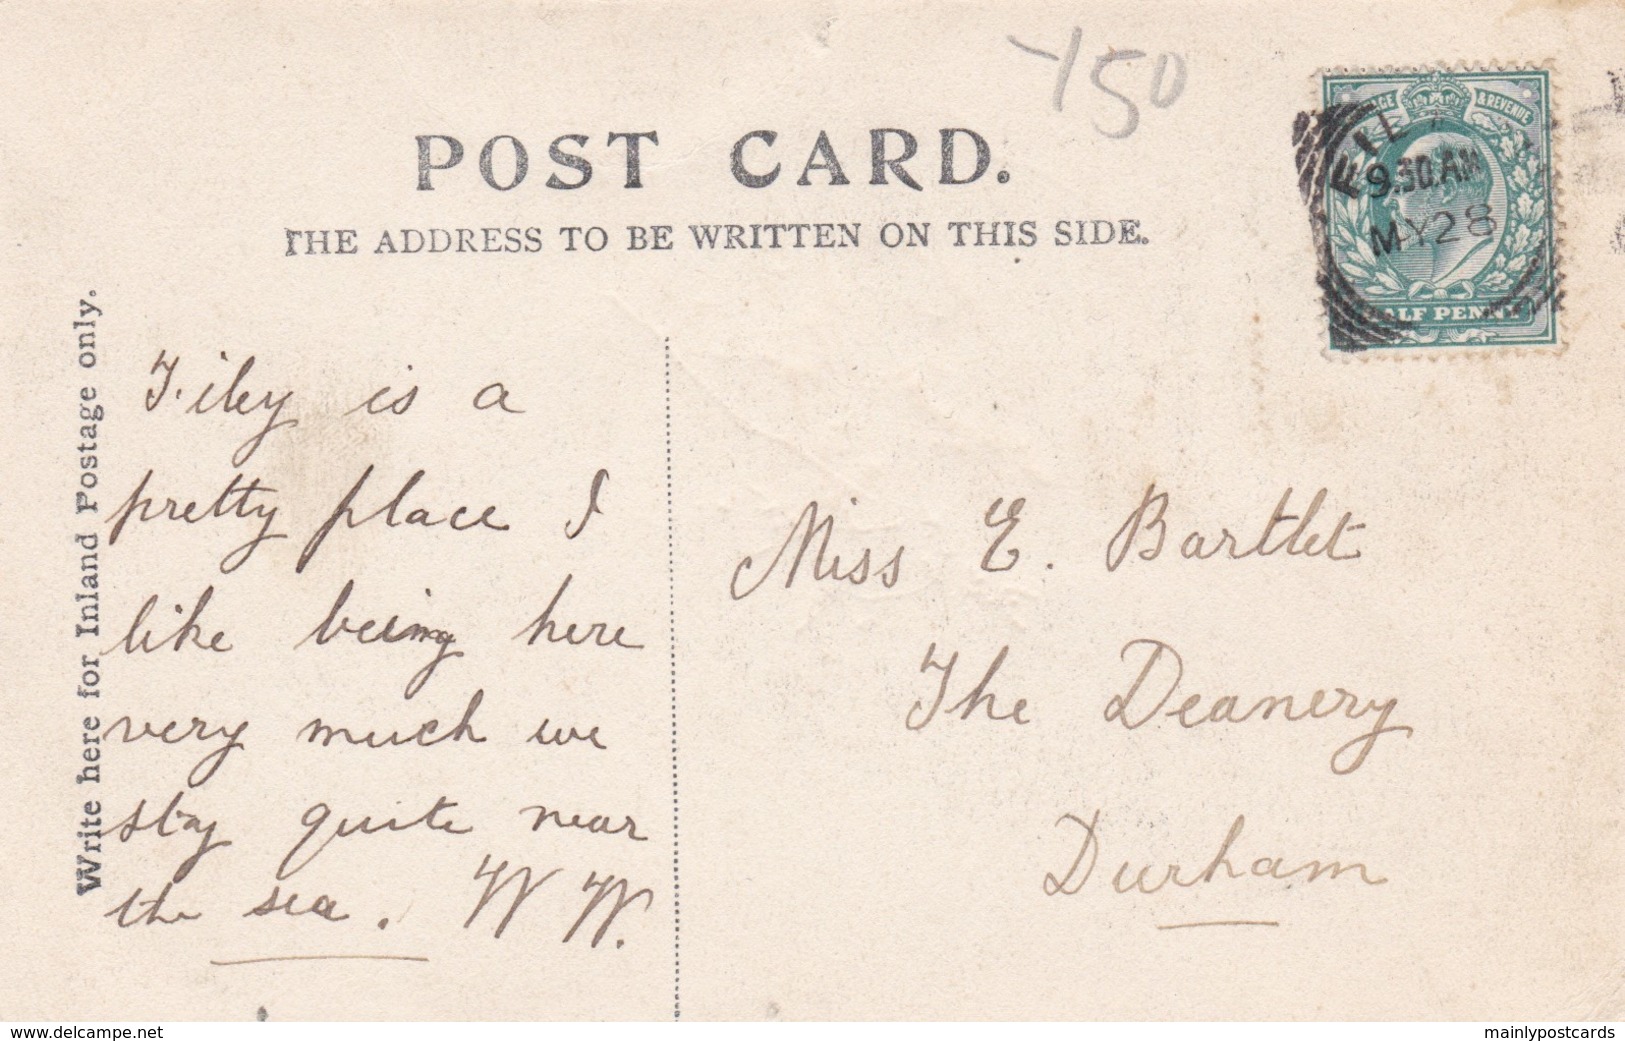 150
POST CARD.
THE ADDRESS TO BE WRITTEN ON THIS SIDE.
& REVENUE
FIL
9.30.AM
MY28
HALF PENNY
Write here for Inland Postage only.
Filey is a
pretty place I
like being here
very much we
stay quite near
the sea. W W.
Miss E. Bartlet
The Deanery
Durham
www.delcampe.net
mainlypostcards